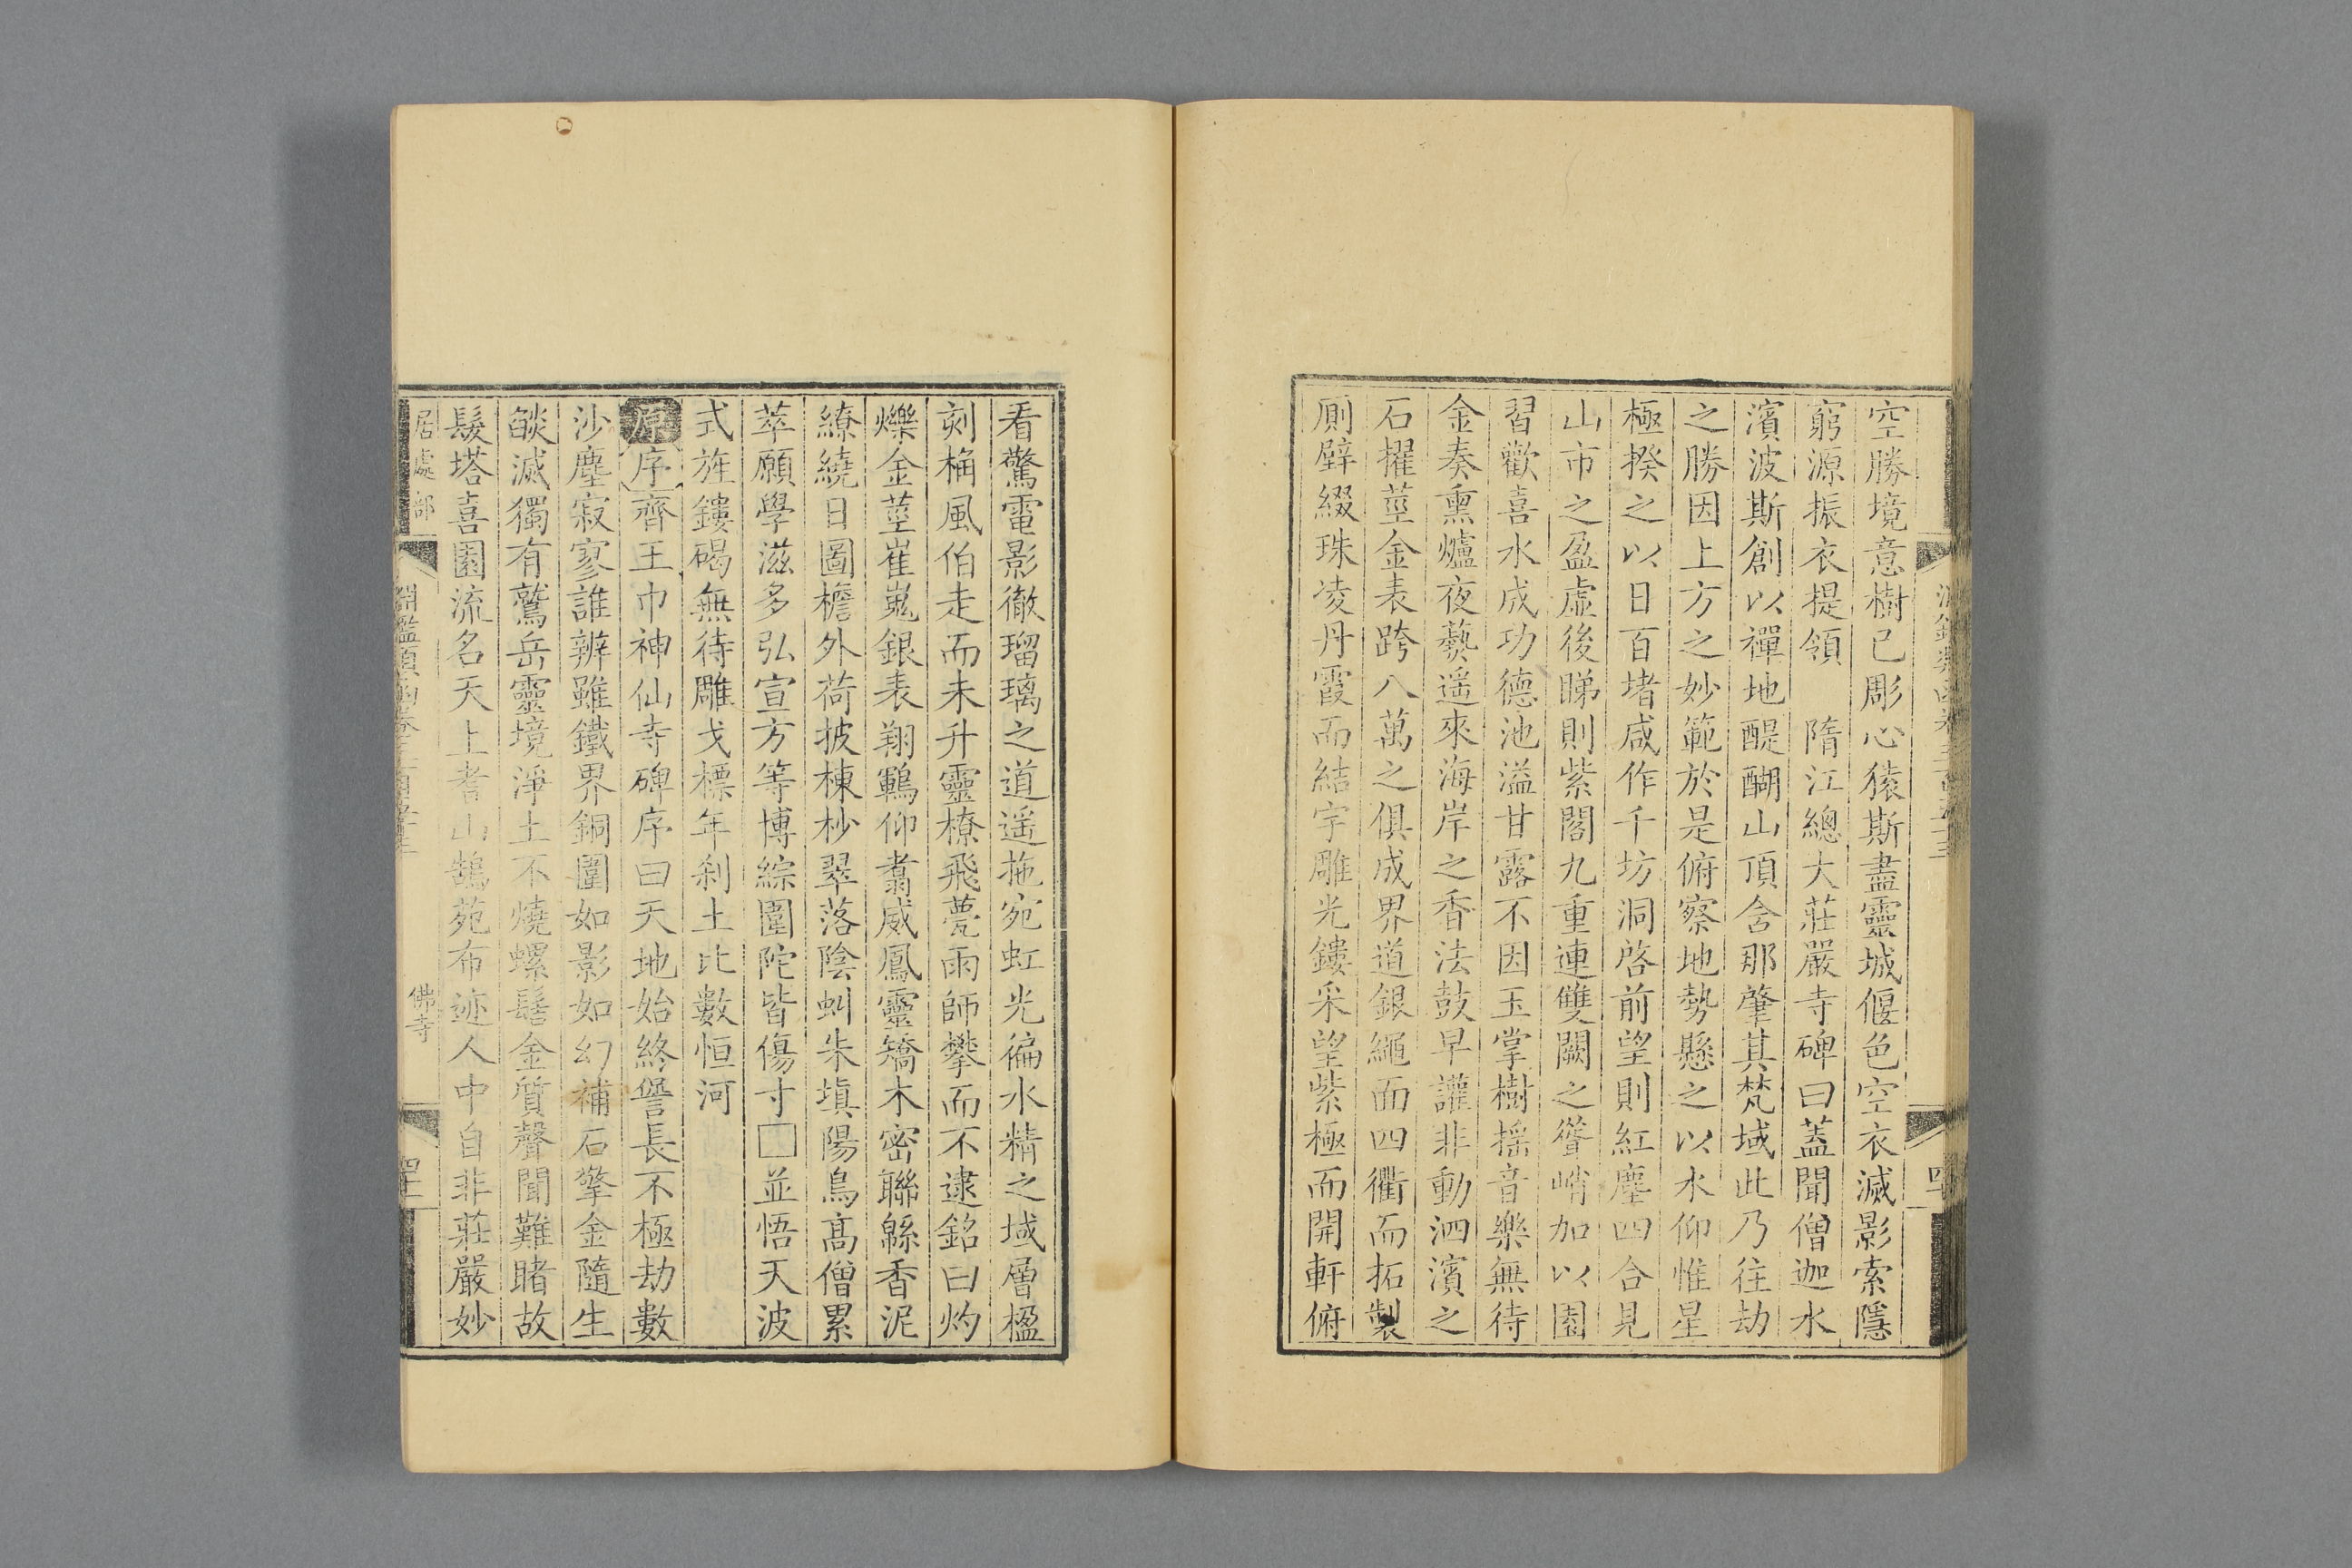 空勝境意樹已彫心猿斯盡靈城偃色空衣滅影索隱
窮源振衣提領　隋江總大莊嚴寺碑曰蓋聞僧迦水
濱波斯創以禪地醍醐山頂舍那肇其梵域此乃往劫
之勝因上方之妙範於是俯察地勢懸之以水仰惟星
極揆之以日百堵咸作千坊洞啓前望則紅塵四合見
山市之盈虛後睇則紫閣九重連雙闕之聳峭加以園
習歡喜水成功德池溢甘露不因玉掌樹揺音樂無待
金奏熏爐夜爇遥來海岸之香法鼓早讙非動泗濱之
石擢莖金表跨八萬之俱成界道銀繩面四衢而拓製
厠壁綴珠凌丹霞而結宇雕光鏤采望紫極而開軒俯
看驚電影徹瑠璃之道遥拖宛虹光徧水精之域層楹
刻桷風伯走而未升靈橑飛甍雨師攀而不逮銘曰灼
爍金莖崔嵬銀表翔鶤仰翥威鳳靈矯木密聯緜香泥
繚繞日圖檐外荷披棟杪翠落陰虯朱填陽鳥髙僧累
萃願學滋多弘宣方等博綜圍陀皆傷寸□並悟天波
式旌鏤碣無待雕戈標年刹土比數恒河
原序齊王巾神仙寺碑序曰天地始終譽長不極劫數
沙塵寂寥誰辨雖鐵界銅圍如影如幻補石擎金隨生
燄滅獨有鷲岳靈境淨土不燒螺髻金質聲聞難睹故
髮塔喜園流名天上耆山鵠苑布迹人中自非莊嚴妙
居處部
淵鑑類函卷三百五十三
佛寺